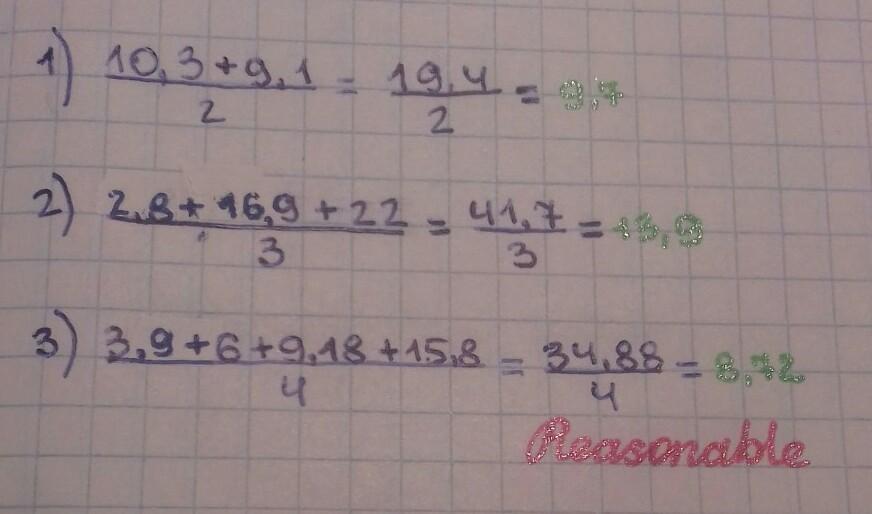 1) 10,3+9,1/2 = 19,4/2 = 9,7
2) 2,8+16,9+22/3 = 41,7/3 = 13,9
3) 3,9+6+9,18+15,8/4 = 34,88/4 = 8,72
Reasonable